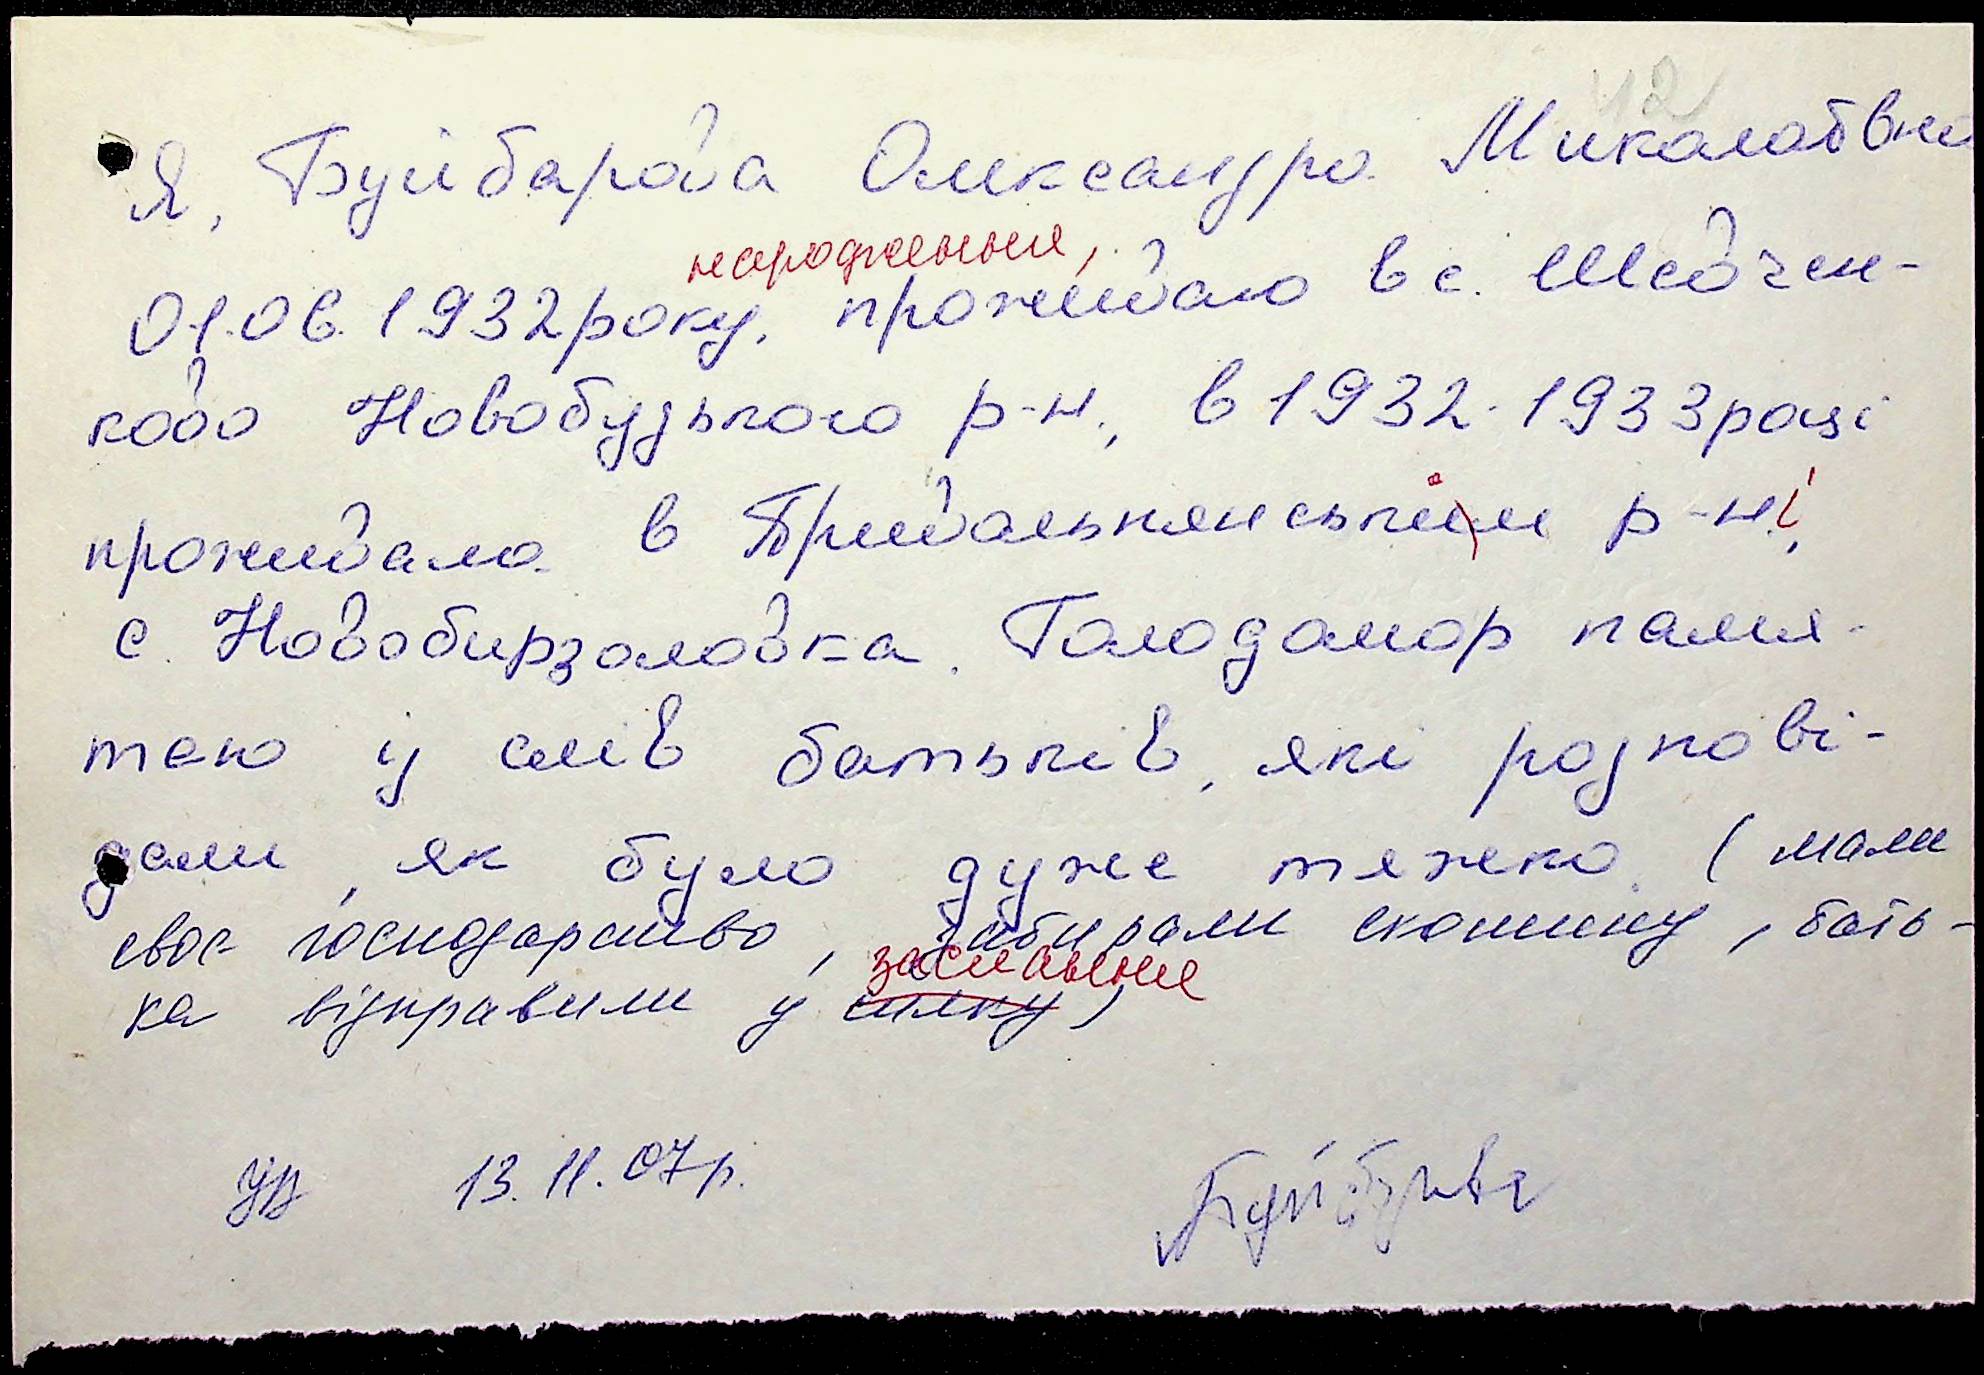 12
Я, Буйбарова Олександра Миколаївна
народження,
01.06.1932 року, проживаю в с. Шевчен-
ково Новобузького р-н, в 1932-1933 році
проживала в Привольнянській р-ні,
с. Новобирзоловка. Голодомор памя-
таю із слів батьків, які розпові-
дали, як було дуже тяжко. (мали
своє господарство, забирали скотину, бать-
заслання
ка відправили у силку)
13.11.07р.